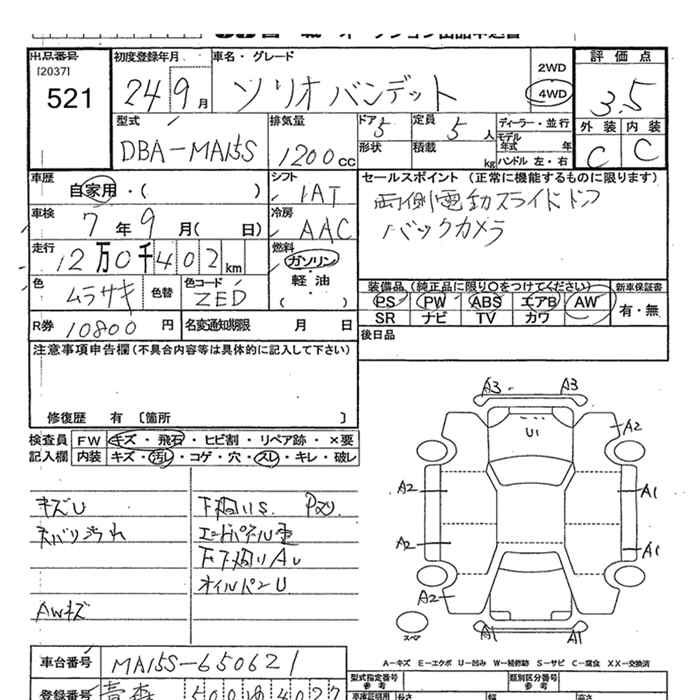 出品番号
[2037]
521
初度登録年月
24 9 月
車名・グレード
ソリオバンデット
2WD
4WD
評価点
3.5
外装 内装
C C
型式
DBA-MA15S
排気量
1200 cc
ドア 5
定員 5 人
形状
積載 kg
ディーラー・並行
モデル年式 年
ハンドル 左・右
車歴
自家用・( )
シフト
IAT
車検
7 年 9 月( 日)
冷房
AAC
走行
12万0千402 km
燃料
ガソリン
軽油
( )
色
ムラサキ
色替
色コード
ZED
R券 10800 円
名変通知期限 月 日
セールスポイント (正常に機能するものに限ります)
両側電動スライドドア
バックカメラ
装備品 (純正品に限り○をつけてください)
PS PW ABS エアB AW
SR ナビ TV カワ
新車保証書
有・無
後日品
注意事項申告欄(不具合内容等は具体的に記入して下さい)
修復歴 有 〔箇所 〕
検査員記入欄
FW キズ・飛石・ヒビ割・リペア跡・×要
内装 キズ・汚レ・コゲ・穴・スレ・キレ・破レ
キズU
下廻りS
エンドパネル
下下廻りAU
オイルパンU
AWキズ
A3 A3
U1
A2
A2 A1
A2 A1
A2
スペア
A1 A1
A-キズ E-エクボ U-凹み W-補修跡 S-サビ C-腐食 XX-交換済
車台番号
MA15S-650621
登録番号
青森 500 4027
型式指定番号
参考
類別区分番号
参考
長さ 幅 高さ